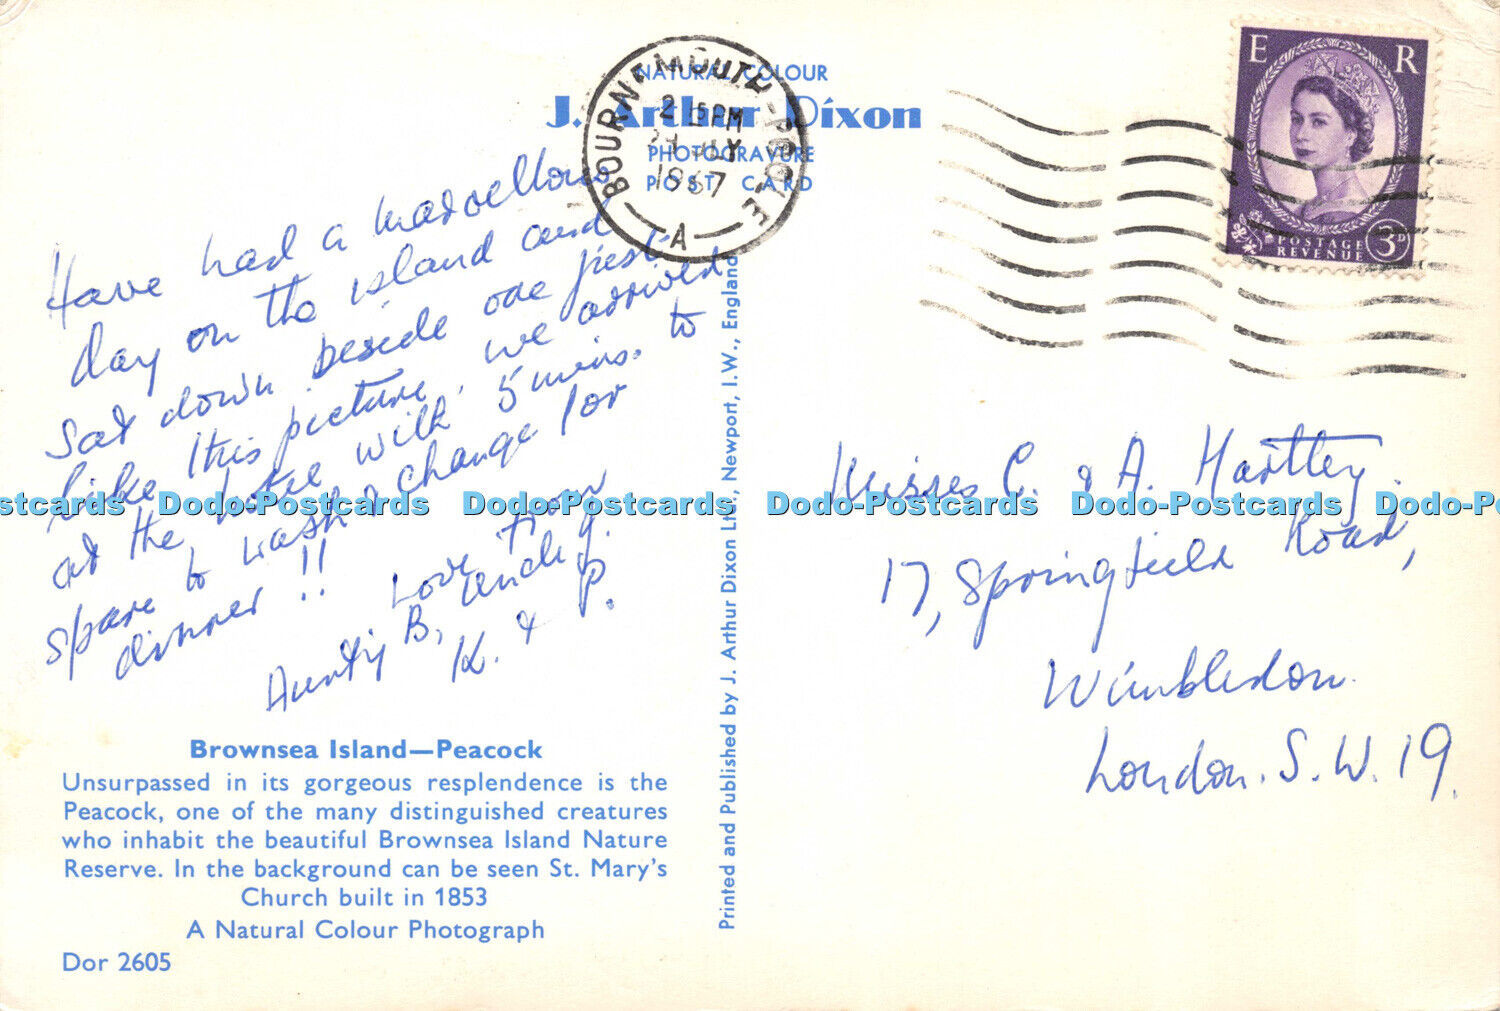 NATURAL COLOUR
J. Arthur Dixon
PHOTOGRAVURE
POST CARD
BOURNEMOUTH-POOLE
2 15PM
JLY
1967
A
E R
POSTAGE
REVENUE
3D
Have had a marvellous
day on the island and
sat down beside one just
like this picture, we arrived
at the hotel with 5 mins. to
spare to wash & change for
dinner !!
Love from
Aunty B, Uncle G.
K. & P.
Misses C. & A. Hartley.
17, Springfield Road,
Wimbledon.
London. S.W. 19.
Dodo-Postcards Dodo-Postcards Dodo-Postcards Dodo-Postcards Dodo-Po
Printed and Published by J. Arthur Dixon Ltd., Newport, I.W., England
Brownsea Island—Peacock
Unsurpassed in its gorgeous resplendence is the
Peacock, one of the many distinguished creatures
who inhabit the beautiful Brownsea Island Nature
Reserve. In the background can be seen St. Mary's
Church built in 1853
A Natural Colour Photograph
Dor 2605